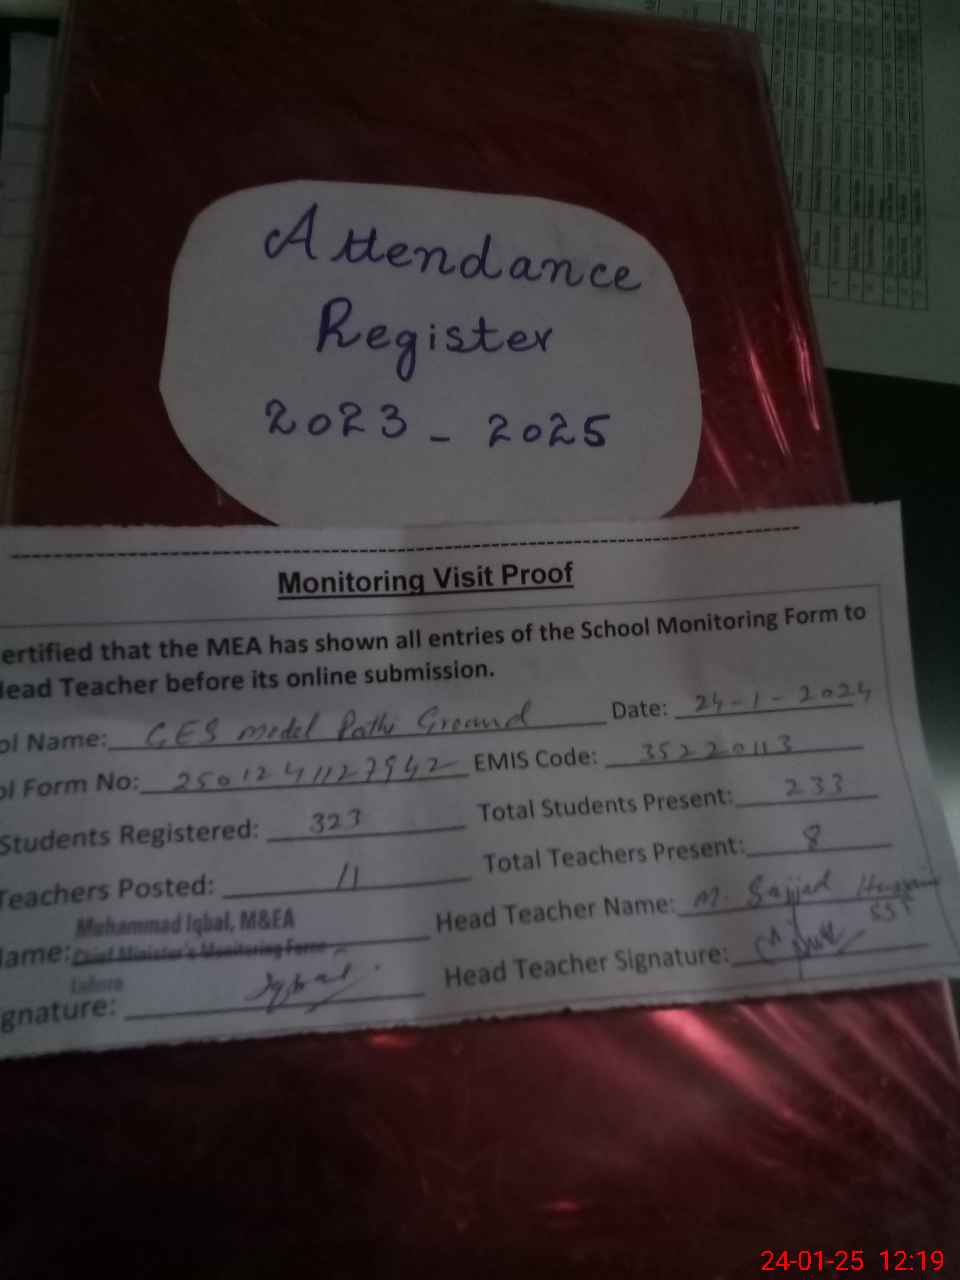 Attendance
Register
2023 - 2025
Monitoring Visit Proof
ertified that the MEA has shown all entries of the School Monitoring Form to
Head Teacher before its online submission.
ol Name: GES model Pathi Ground Date: 24-1-2024
ol Form No: 2501241127942 EMIS Code: 35220113
Students Registered: 323 Total Students Present: 233
Teachers Posted: 11 Total Teachers Present: 8
Muhammad Iqbal, M&EA
Name: Chief Minister's Monitoring Force Head Teacher Name: M. Sajjad Hussain
SST
Lahore
gnature: Iqbal Head Teacher Signature:
24-01-25 12:19